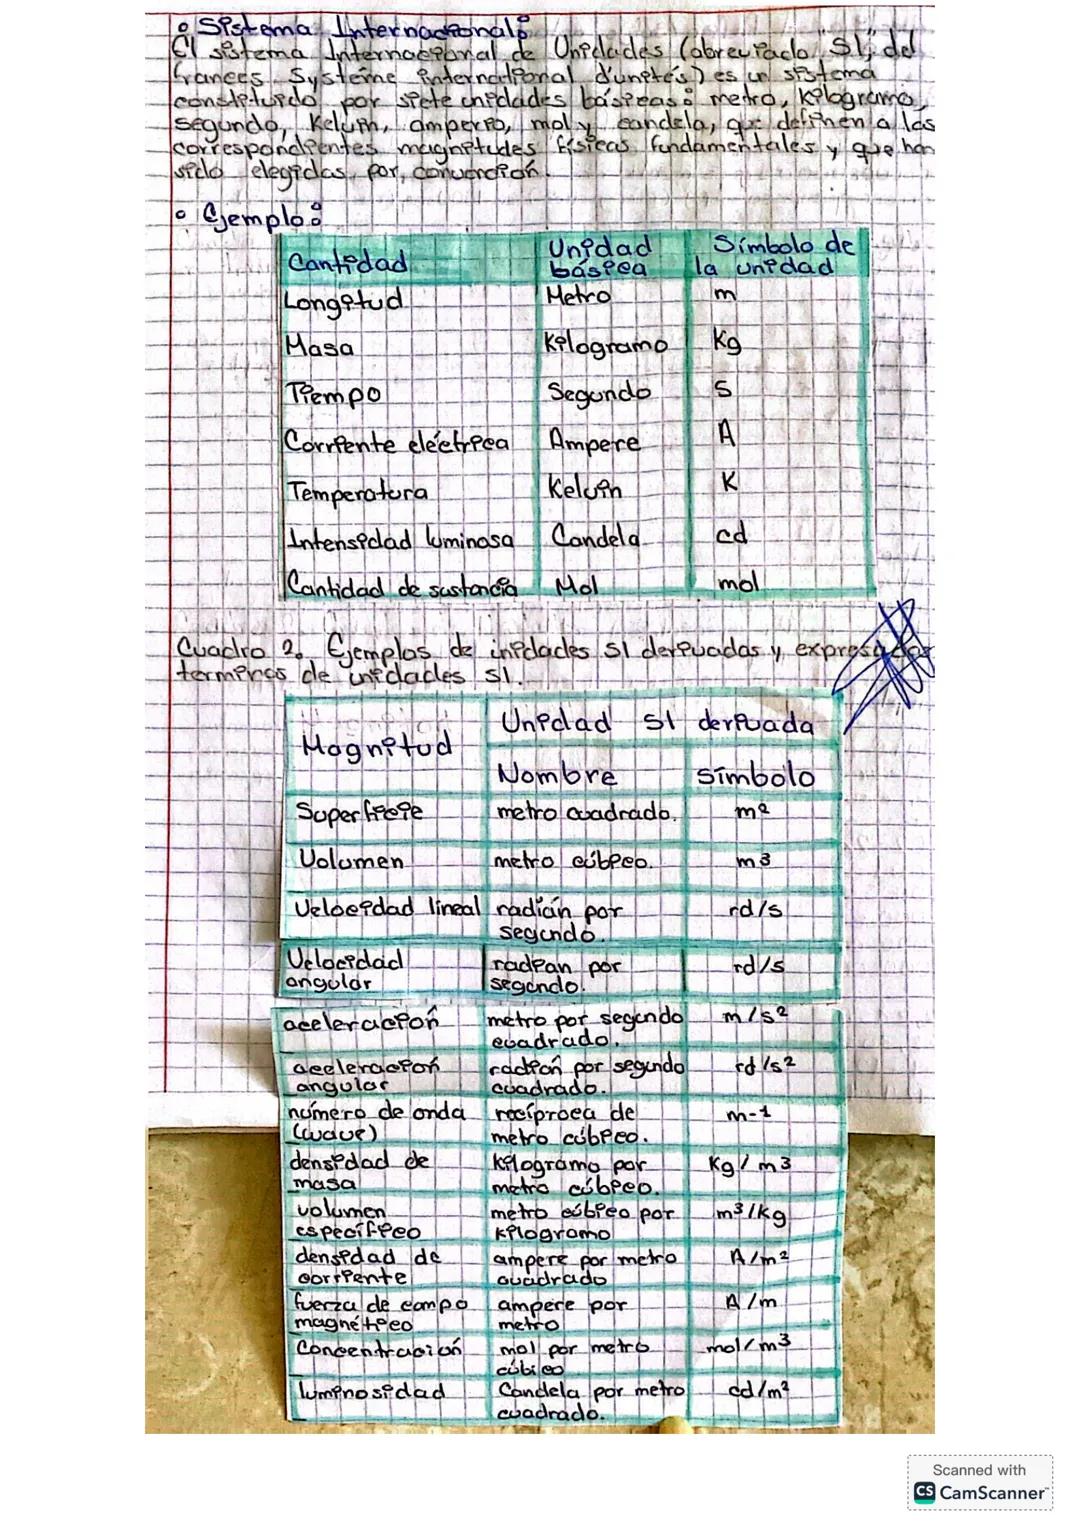 • Sistema Internacional:
El sistema Internacional de Unidades (abreviado "SI", del
frances Systéme international d'unités) es un sistema
constituido por siete unidades básicas: metro, Kilogramo,
segundo, Kelvin, amperio, mol y candela, que definen a las
correspondientes magnitudes físicas fundamentales y que han
sido elegidas por convención.
• Ejemplo:
Cantidad Unidad básica Símbolo de la unidad
Longitud Metro m
Masa Kilogramo Kg
Tiempo Segundo S
Corriente eléctrica Ampere A
Temperatura Kelvin K
Intensidad luminosa Candela cd
Cantidad de sustancia Mol mol
Cuadro 2. Ejemplos de unidades SI derivadas y expresadas
terminos de unidades SI.
Magnitud Unidad SI derivada
Nombre símbolo
Superficie metro cuadrado. m²
Volumen metro cúbico. m3
Velocidad lineal radián por segundo. rd/s
Velocidad angular radian por segundo. rd/s
aceleración metro por segundo cuadrado. m/s²
aceleración angular radián por segundo cuadrado. rd/s²
número de onda (wave) recíproca de metro cúbico. m-1
densidad de masa Kilogramo por metro cúbico. Kg/m3
volumen específico metro cúbico por kilogramo m³/kg
densidad de corriente ampere por metro cuadrado A/m²
fuerza de campo magnético ampere por metro A/m
Concentración mol por metro cúbico mol/m³
luminosidad Candela por metro cuadrado. cd/m²
Scanned with
CS CamScanner